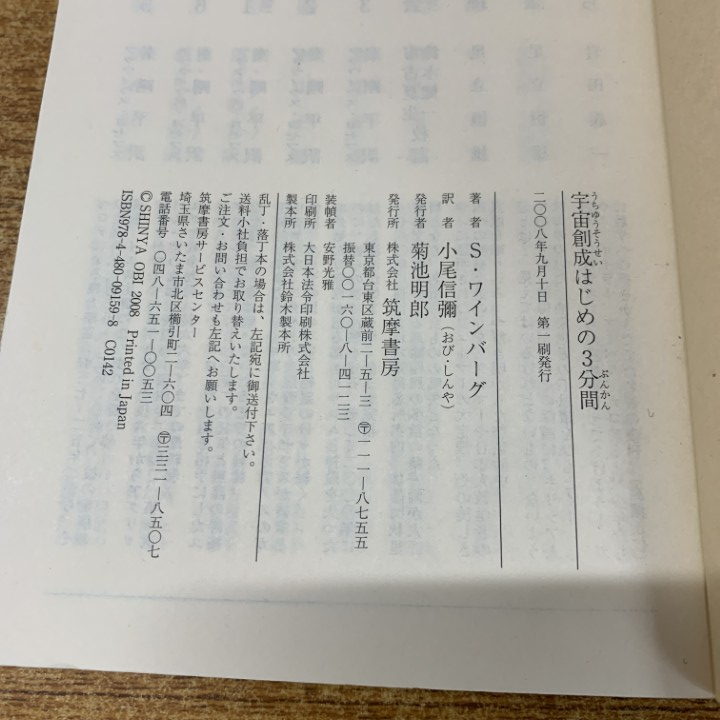 宇宙創成はじめの3分間
うちゅうそうせい
ぷんかん
二〇〇八年九月十日　第一刷発行
著者　S・ワインバーグ
訳者　小尾信彌（おび・しんや）
発行者　菊池明郎
発行所　株式会社　筑摩書房
東京都台東区蔵前二―五―三　〒一一一―八七五五
振替〇〇一六〇―八―四一二三
装幀者　安野光雅
印刷所　大日本法令印刷株式会社
製本所　株式会社鈴木製本所
乱丁・落丁本の場合は、左記宛に御送付下さい。
送料小社負担でお取り替えいたします。
ご注文・お問い合わせも左記へお願いします。
筑摩書房サービスセンター
埼玉県さいたま市北区櫛引町二―六〇四　〒三三一―八五〇七
電話番号　〇四八―六五一―〇〇五三
©SHINYA OBI 2008 Printed in Japan
ISBN978-4-480-09159-8 C0142